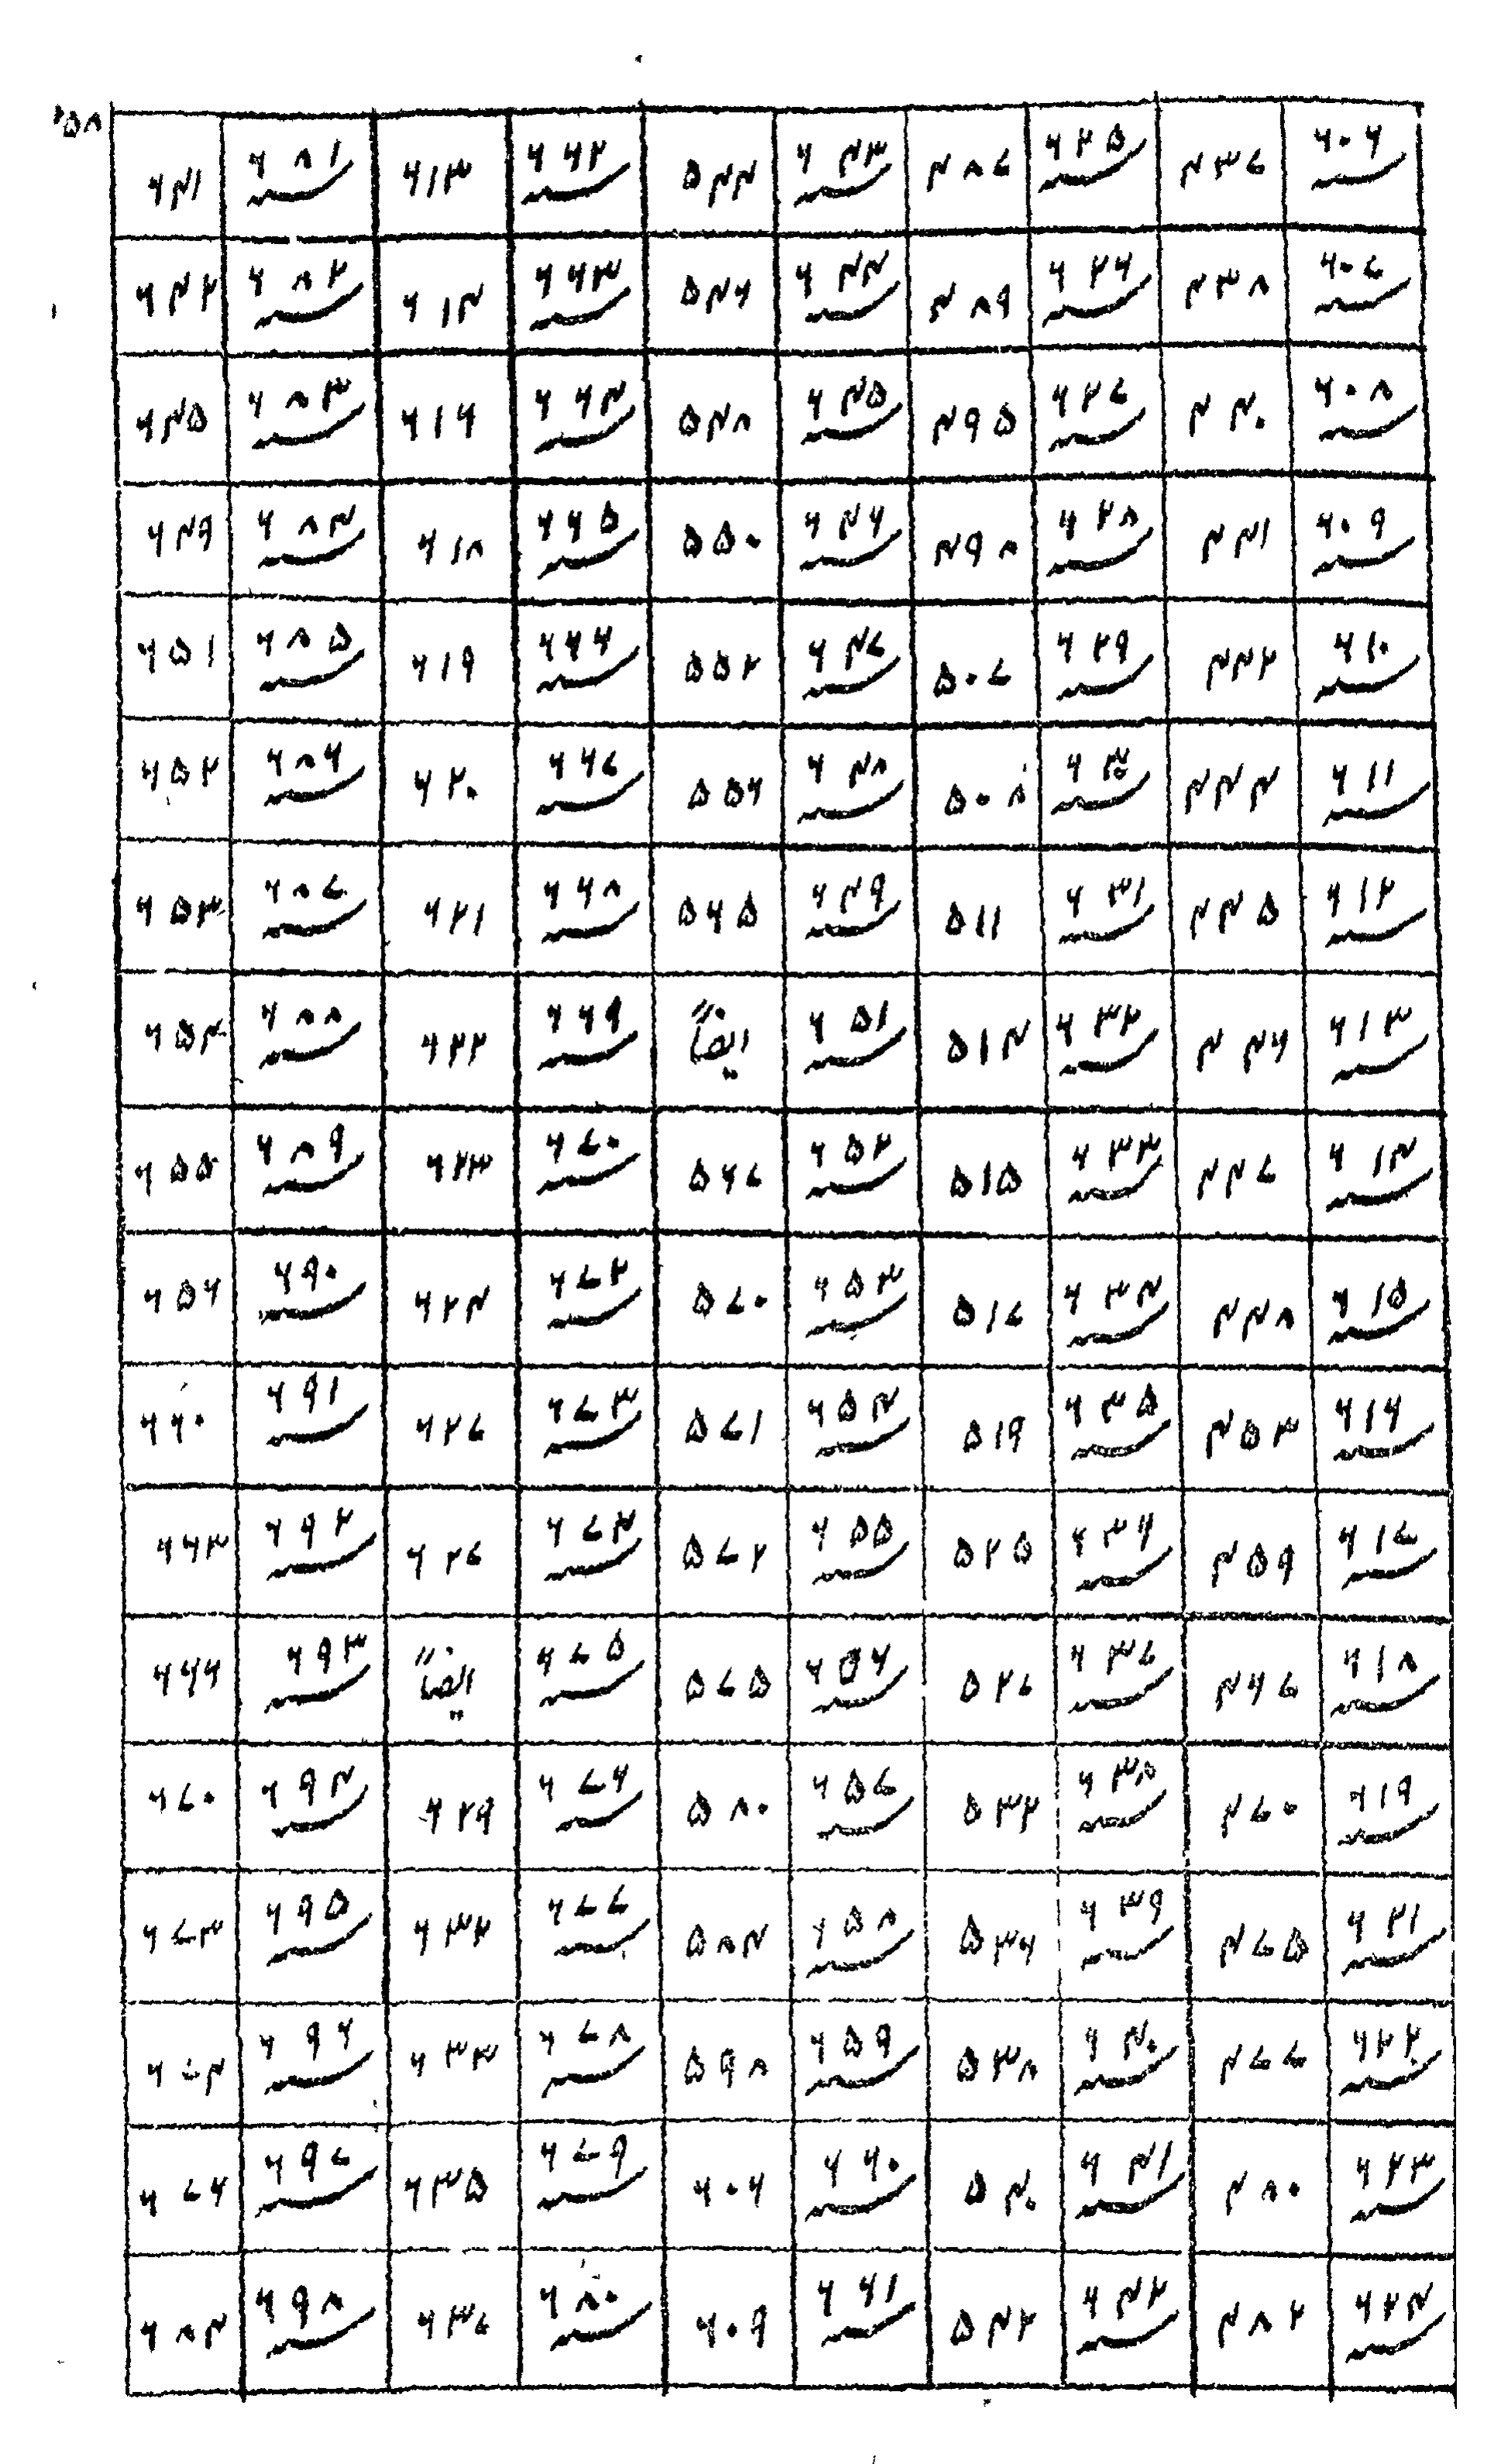 ۶۰۶ ۴۳۷ ۶۲۵ ۴۸۷ ۶۴۳ ۵۴۴ ۶۶۲ ۶۱۳ ۶۸۱ ۶۴۱
۶۰۷ ۴۳۸ ۶۲۶ ۴۸۹ ۶۴۴ ۵۴۶ ۶۶۳ ۶۱۴ ۶۸۲ ۶۴۲
۶۰۸ ۴۴۰ ۶۲۷ ۴۹۵ ۶۴۵ ۵۴۸ ۶۶۴ ۶۱۶ ۶۸۳ ۶۴۵
۶۰۹ ۴۴۱ ۶۲۸ ۴۹۸ ۶۴۶ ۵۵۰ ۶۶۵ ۶۱۸ ۶۸۴ ۶۴۹
۶۱۰ ۴۴۲ ۶۲۹ ۵۰۷ ۶۴۷ ۵۵۲ ۶۶۶ ۶۱۹ ۶۸۵ ۶۵۱
۶۱۱ ۴۴۴ ۶۳۰ ۵۰۸ ۶۴۸ ۵۵۶ ۶۶۷ ۶۲۰ ۶۸۶ ۶۵۲
۶۱۲ ۴۴۵ ۶۳۱ ۵۱۱ ۶۴۹ ۵۶۵ ۶۶۸ ۶۲۱ ۶۸۷ ۶۵۳
۶۱۳ ۴۴۶ ۶۳۲ ۵۱۴ ۶۵۱ ایضاً ۶۶۹ ۶۲۲ ۶۸۸ ۶۵۴
۶۱۴ ۴۴۷ ۶۳۳ ۵۱۵ ۶۵۲ ۵۶۷ ۶۷۰ ۶۲۳ ۶۸۹ ۶۵۵
۶۱۵ ۴۴۸ ۶۳۴ ۵۱۷ ۶۵۳ ۵۷۰ ۶۷۲ ۶۲۴ ۶۹۰ ۶۵۶
۶۱۶ ۴۵۳ ۶۳۵ ۵۱۹ ۶۵۴ ۵۷۱ ۶۷۳ ۶۲۷ ۶۹۱ ۶۶۰
۶۱۷ ۴۵۹ ۶۳۶ ۵۲۵ ۶۵۵ ۵۷۲ ۶۷۴ ۶۲۷ ۶۹۲ ۶۶۳
۶۱۸ ۴۶۷ ۶۳۷ ۵۲۷ ۶۵۶ ۵۷۵ ۶۷۵ ایضاً ۶۹۳ ۶۶۶
۶۱۹ ۴۷۰ ۶۳۸ ۵۳۲ ۶۵۷ ۵۸۰ ۶۷۶ ۶۲۹ ۶۹۴ ۶۷۰
۶۲۱ ۴۷۵ ۶۳۹ ۵۳۶ ۶۵۸ ۵۸۴ ۶۷۷ ۶۳۲ ۶۹۵ ۶۷۳
۶۲۲ ۴۷۷ ۶۴۰ ۵۳۸ ۶۵۹ ۵۹۸ ۶۷۸ ۶۳۳ ۶۹۶ ۶۷۴
۶۲۳ ۴۸۰ ۶۴۱ ۵۴۰ ۶۶۰ ۶۰۶ ۶۷۹ ۶۳۵ ۶۹۷ ۶۷۶
۶۲۴ ۴۸۲ ۶۴۲ ۵۴۲ ۶۶۱ ۶۰۹ ۶۸۰ ۶۳۷ ۶۹۸ ۶۸۴